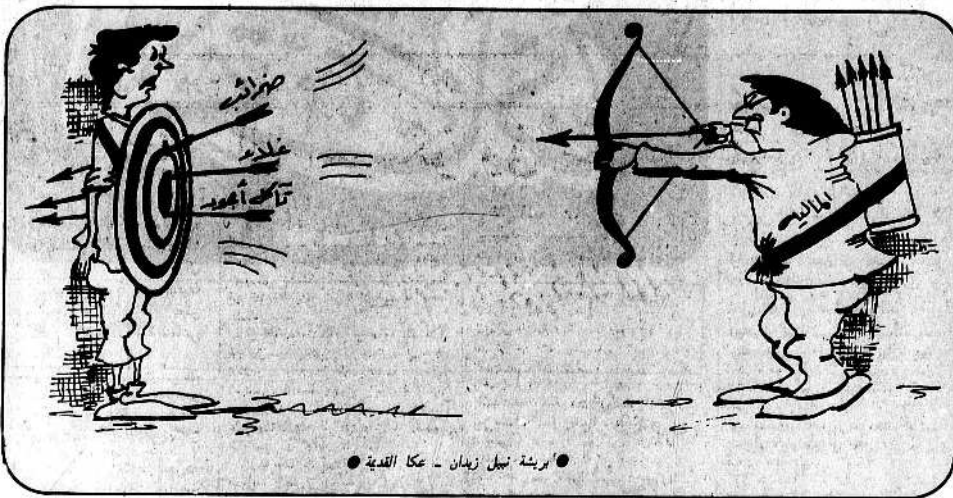 ضرائب
غلاء
تآكل أجور
المالية
● بريشة نبيل زيدان - عكا القديمة ●